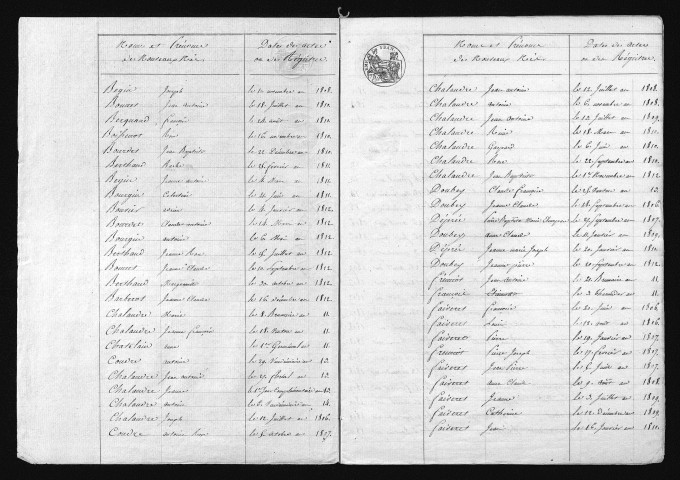 Noms et Prénoms des Nouveaux Nés. Dates des actes ou des Régistres.
Begin Joseph le 10 novembre an 1808.
Bouvet Jean Antoine le 18 Juillet an 1810.
Berquand François le 20 août an 1810.
le 16 novembre an 1810.
Bourdet Jean Baptiste le 22 Décembre an 1810.
Berthaud le 26 février an 1811.
Begin Jeanne le 4 Mars an 1811.
Bourgin Celestin le 20 Juin an 1811.
Bouvet le 16 Janvier an 1812.
Bourdet Claude Antoine le 14 Mars an 1812.
Bourgin antoine le 6 Mai an 1812.
Berthaud Jeanne le 15 Juillet an 1812.
Bouvet Jeanne Claude le 10 Septembre an 1812.
Berthaud Marguerite le 30 octobre an 1812.
Barberot Jeanne Claude le 16 décembre an 1812.
Chalandre Marie le 8 Brumaire an 11.
Chalandre Jeanne françoise le 18 an 11.
Chatelain le 1er Germinal an 11.
Coudre antoine le 29 Vendémiaire an 13.
Chalandre Jean antoine le 27 floréal an 13.
Chalandre Jeanne le 1er Jour Complémentaire an 13.
Chalandre antoine le 6 Vendémiaire an 14.
Chalandre Joseph le 12 Juillet an 1806.
Coudre antoine le 6 octobre an 1807.
Noms et Prénoms des Nouveaux Nés. Dates des actes ou des Régistres.
Chalandre Jean antoine le 12 Juillet an 1808.
Chalandre antoine le 6 novembre an 1808.
Chalandre Jean Antoine le 12 Juillet an 1809.
Chalandre le 18 Mars an 1810.
Chalandre Gaspard le 6 Juin an 1810.
Chalandre le 22 Septembre an 1810.
Chalandre Jean Baptiste le 1er Novembre an 1812.
Doubey Claude françois le 23 an 13.
Doubey Jeanne Claude le 18 Septembre an 1806.
Déprée le 27 Septembre an 1807.
Doubey anne Claude le 11 Janvier an 1809.
Déprée Jeanne marie Joseph le 20 Janvier an 1810.
Doubey Jeanne pierre le 20 Septembre an 1812.
Jean Antoine le 21 Brumaire an 11.
françois le 3 Thermidor an 11.
Faivret François le 21 Juin an 1806.
Faivret Marie le 12 août an 1806.
Faivret Pierre le 19 Janvier an 1807.
Pierre Joseph le 11 février an 1807.
Faivret Jean Pierre le 6 Juin an 1807.
Faivret anne Claude le 9 Août an 1808.
Faivret Jeanne le 3 Juillet an 1809.
Faivret Catherine le 12 Décembre an 1809.
Faivret Jean le 16 Janvier an 1810.